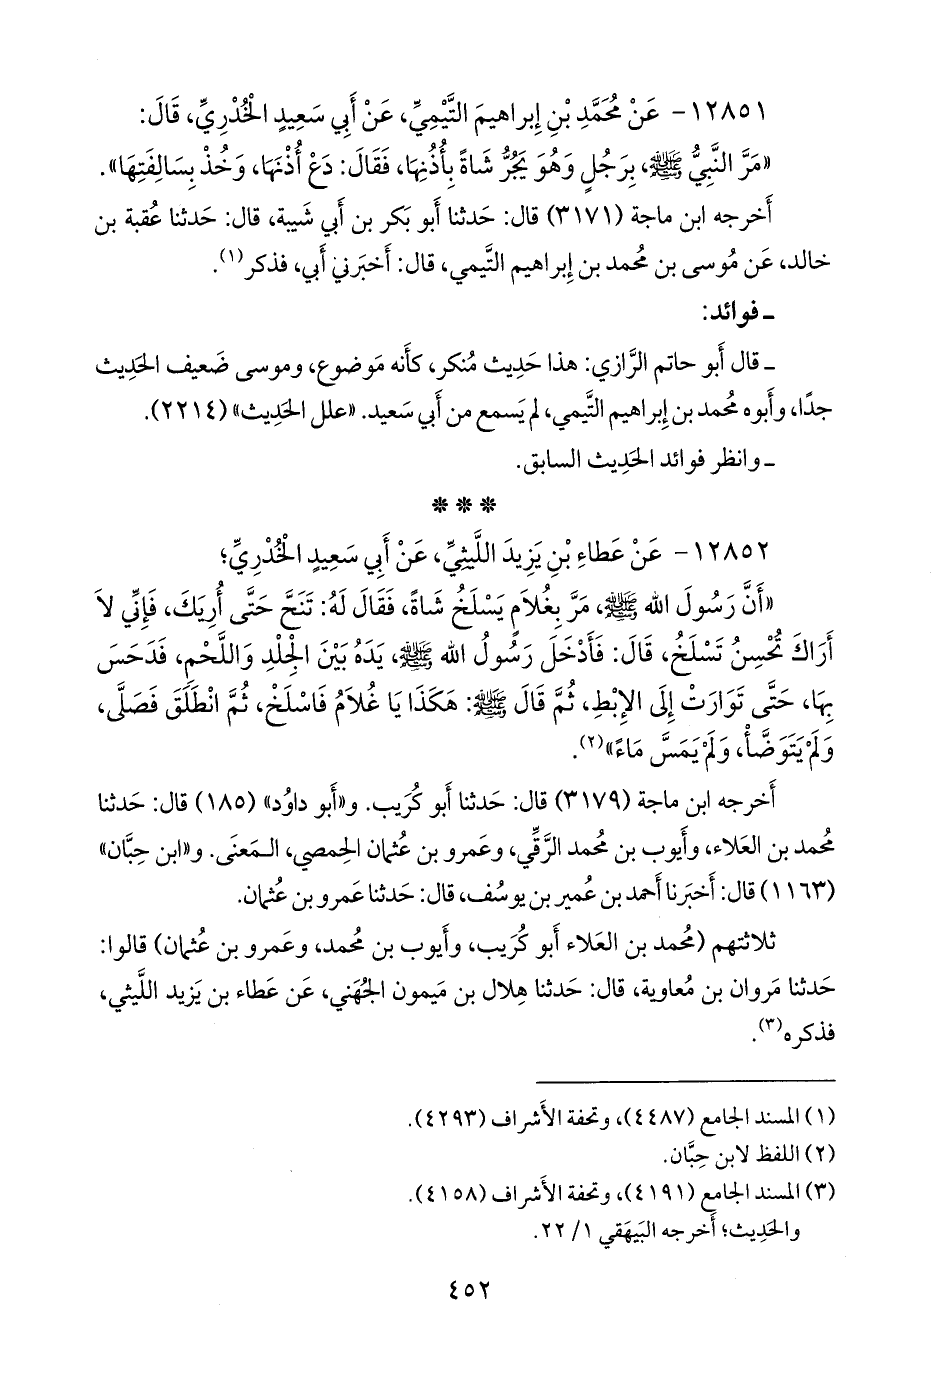 ١٢٨٥١- عَنْ مُحَمَّدِ بْنِ إِبراهيمَ التَّيْمِيِّ، عَنْ أَبِي سَعِيدٍ الْخُدْرِيِّ، قَالَ:
«مَرَّ النَّبِيُّ ﷺ، بِرَجُلٍ وَهُوَ يَجُرُّ شَاةً بِأُذُنِهَا، فَقَالَ: دَعْ أُذُنَهَا، وَخُذْ بِسَالِفَتِهَا».
أَخرجه ابن ماجة (٣١٧١) قال: حَدثنا أَبو بَكر بن أَبي شَيبة، قال: حَدثنا عُقبة بن
خالد، عَن مُوسى بن مُحمد بن إِبراهيم التَّيمي، قال: أَخبَرني أَبي، فذكر(١).
ـ فوائد:
ـ قال أَبو حاتم الرَّازي: هذا حَديث مُنكر، كأَنه مَوضوع، وموسى ضَعيف الحَديث
جدًا، وأَبوه مُحمد بن إِبراهيم التَّيمي، لم يَسمع من أَبي سَعيد. «علل الحَديث» (٢٢١٤).
ـ وانظر فوائد الحَديث السابق.
* * *
١٢٨٥٢- عَنْ عَطاءِ بْنِ يَزِيدَ اللَّيْثِيِّ، عَنْ أَبِي سَعِيدٍ الْخُدْرِيِّ؛
«أَنَّ رَسُولَ الله ﷺ، مَرَّ بِغُلاَمٍ يَسْلَخُ شَاةً، فَقَالَ لَهُ: تَنَحَّ حَتَّى أُرِيَكَ، فَإِنِّي لاَ
أَرَاكَ تُحْسِنُ تَسْلَخُ، قَالَ: فَأَدْخَلَ رَسُولُ الله ﷺ، يَدَهُ بَيْنَ الْجِلْدِ وَاللَّحْمِ، فَدَحَسَ
بِهَا، حَتَّى تَوَارَتْ إِلَى الإِبْطِ، ثُمَّ قَالَ ﷺ: هَكَذَا يَا غُلاَمُ فَاسْلَخْ، ثُمَّ انْطَلَقَ فَصَلَّى،
وَلَمْ يَتَوَضَّأْ، وَلَمْ يَمَسَّ مَاءً»(٢).
أَخرجه ابن ماجة (٣١٧٩) قال: حَدثنا أَبو كُرَيب. و«أَبو داوُد» (١٨٥) قال: حَدثنا
مُحمد بن العَلاء، وأَيوب بن مُحمد الرَّقِّي، وعَمرو بن عُثمان الحِمصي، الـمَعنَى. و«ابن حِبَّان»
(١١٦٣) قال: أَخبَرنا أَحمد بن عُمير بن يوسُف، قال: حَدثنا عَمرو بن عُثمان.
ثلاثتهم (مُحمد بن العَلاء أَبو كُرَيب، وأَيوب بن مُحمد، وعَمرو بن عُثمان) قالوا:
حَدثنا مَروان بن مُعاوية، قال: حَدثنا هِلال بن مَيمون الجُهَني، عَن عَطاء بن يَزيد اللَّيثي،
فذكره(٣).
(١) المسند الجامع (٤٤٨٧)، وتحفة الأَشراف (٤٢٩٣).
(٢) اللفظ لابن حِبَّان.
(٣) المسند الجامع (٤١٩١)، وتحفة الأَشراف (٤١٥٨).
والحَديث؛ أَخرجه البَيهَقي ١/ ٢٢.
٤٥٢